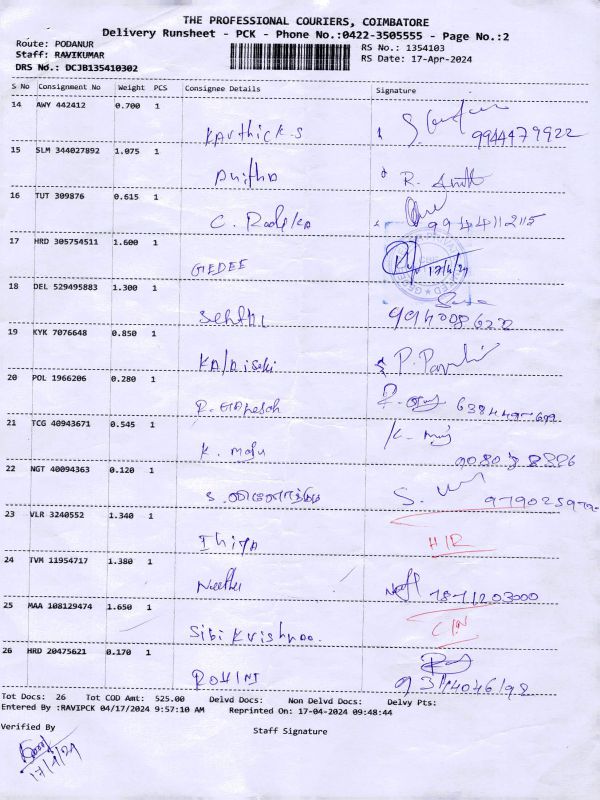 THE PROFESSIONAL COURIERS, COIMBATORE
Delivery Runsheet - PCK - Phone No.:0422-3505555 - Page No.:2
Route: PODANUR
RS No.: 1354103
Staff: RAVIKUMAR
RS Date: 17-Apr-2024
DRS No.: DCJB135410302
S No Consignment No Weight PCS Consignee Details Signature
14 AWY 442412 0.700 1
Karthick.S 9944479922
15 SLM 344027892 1.075 1
Anitha R.
16 TUT 309876 0.615 1
C. Radhika 9944112115
17 HRD 305754511 1.600 1
GEDEE 17/4/24
18 DEL 529495883 1.300 1
Senthil
19 KYK 7076648 0.850 1
KAlAiselvi P.
20 POL 1966206 0.280 1
R. GAnesh
21 TCG 40943671 0.545 1
K.
22 NGT 40094363 0.120 1
S. S.
23 VLR 3240552 1.340 1
24 TVM 11954717 1.380 1
Neethu
25 MAA 108129474 1.650 1
Sibi Krishnaa.
26 HRD 20475621 0.170 1
ROHINI
Tot Docs: 26 Tot COD Amt: 525.00 Delvd Docs: Non Delvd Docs: Delvy Pts:
Entered By :RAVIPCK 04/17/2024 9:57:10 AM Reprinted On: 17-04-2024 09:48:44
Verified By Staff Signature
17/4/24